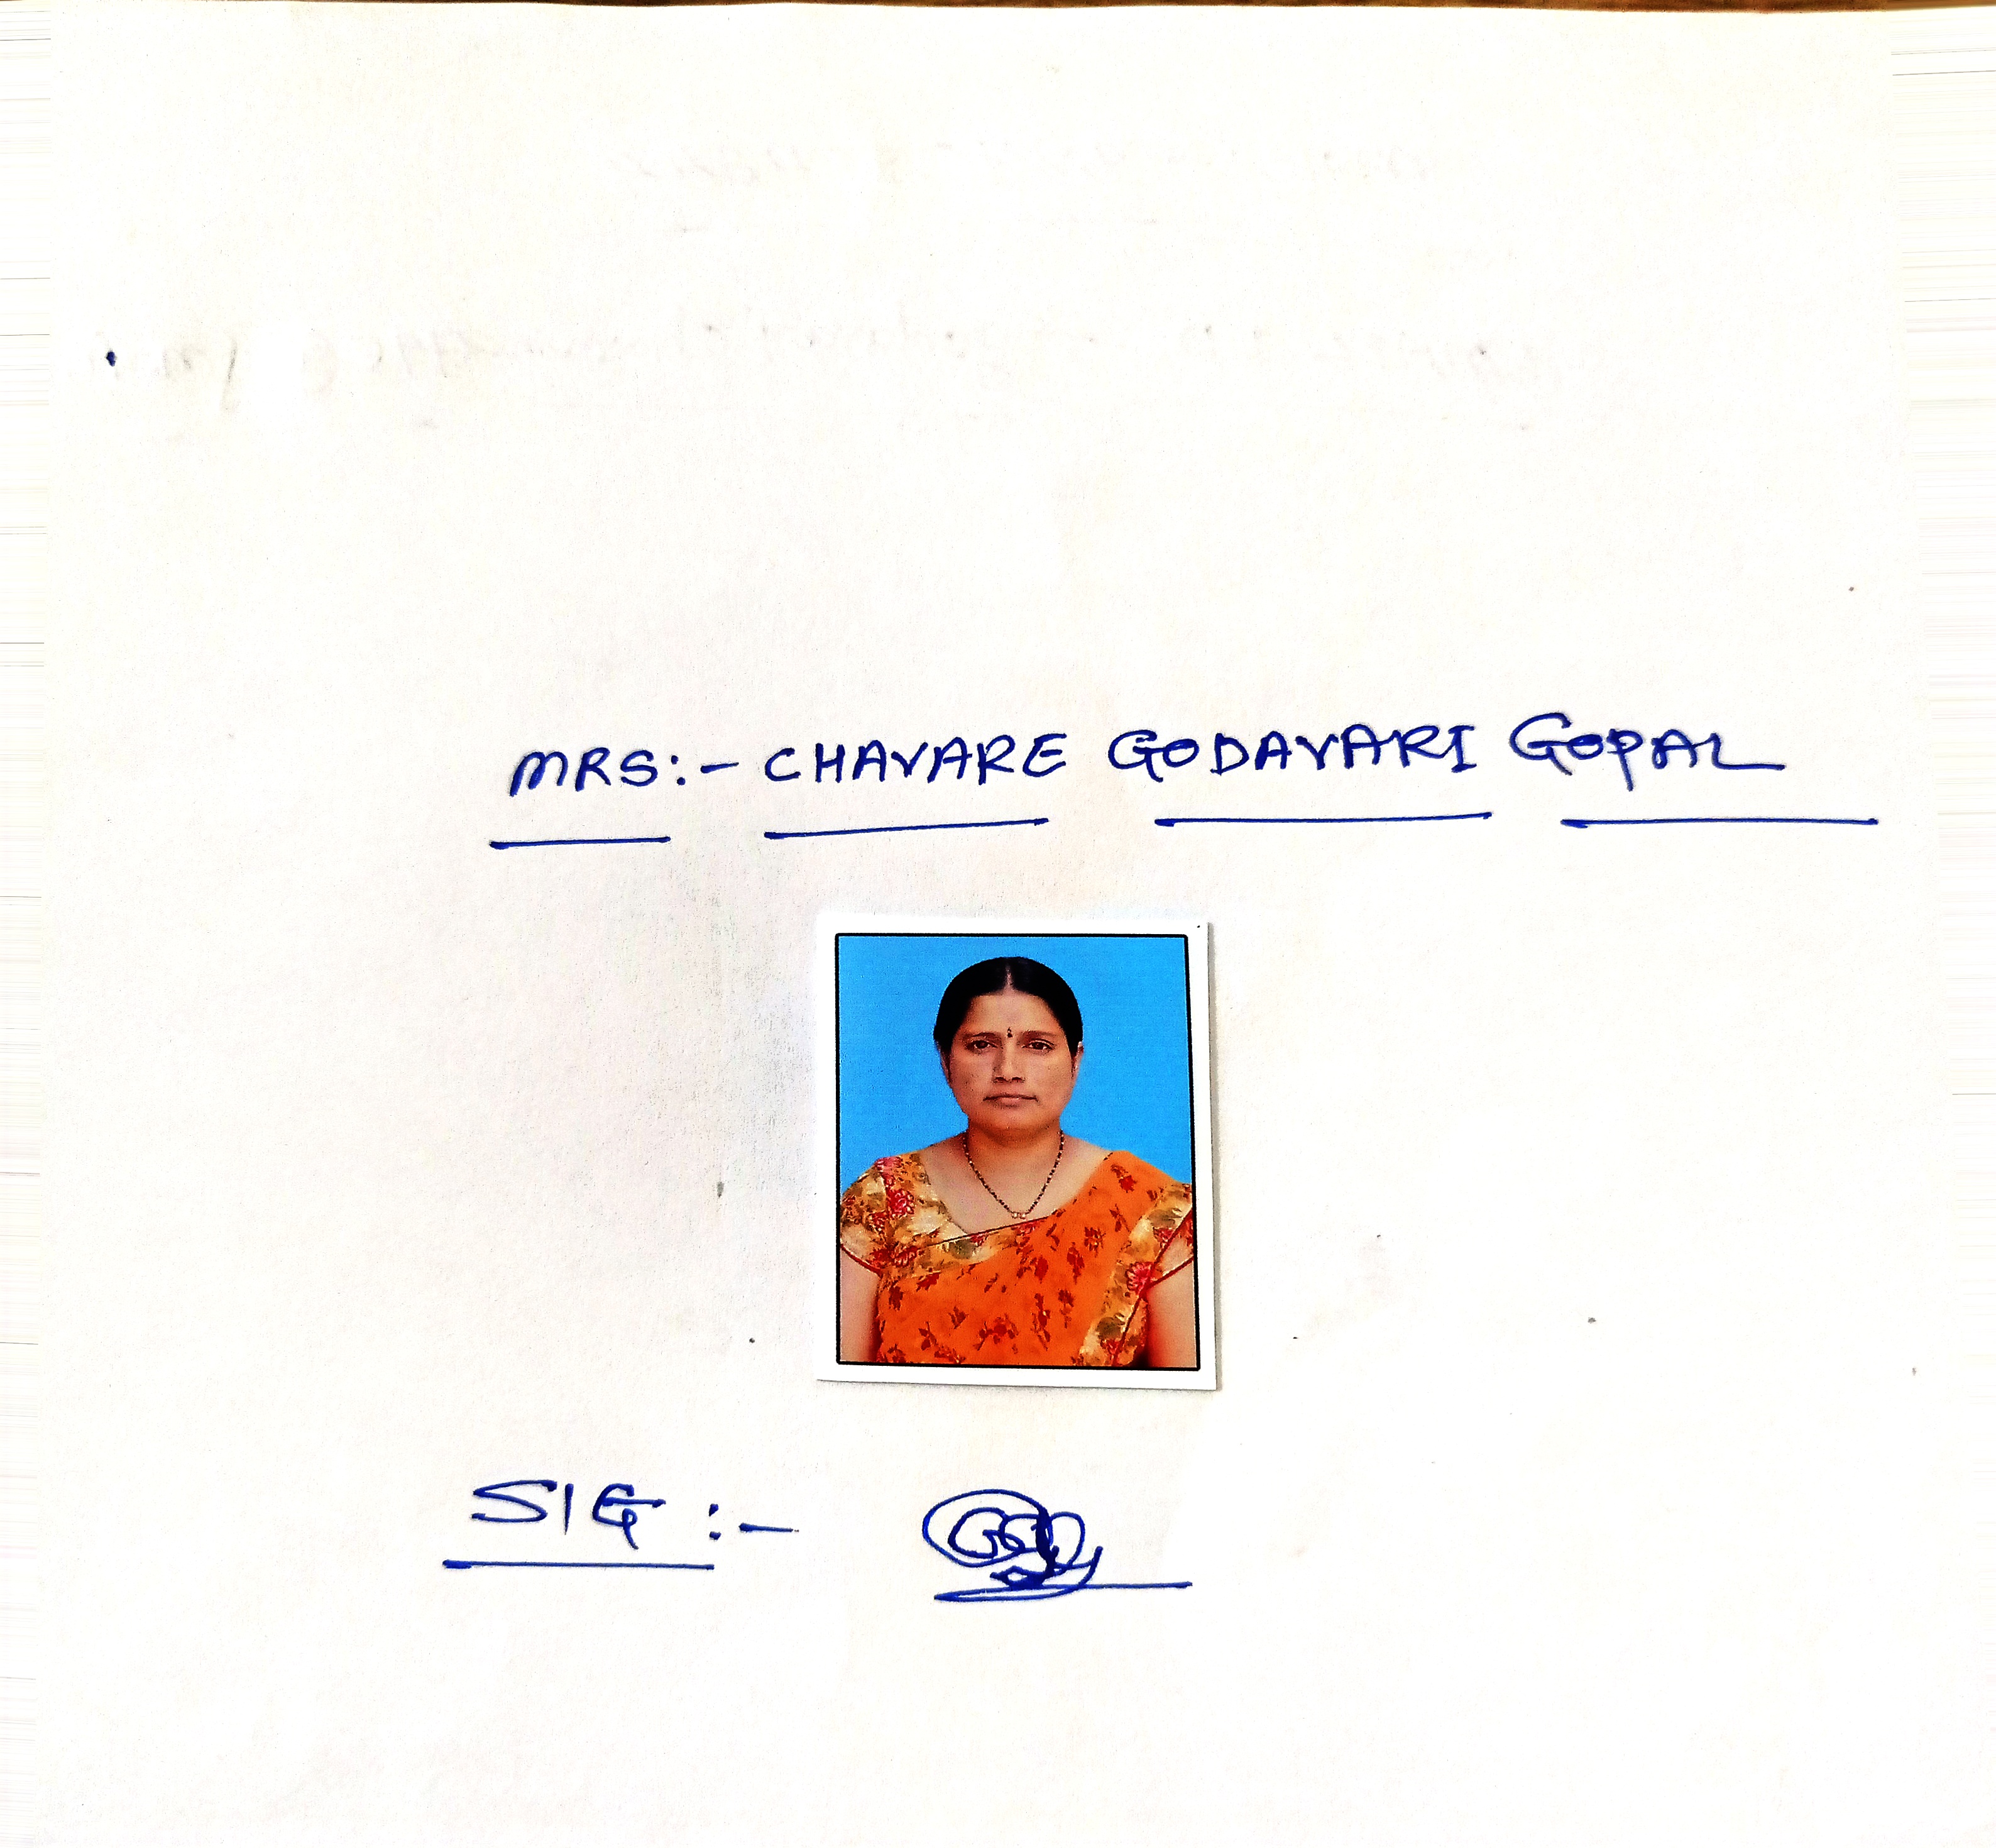 MRS:- CHAVARE GODAVARI GOPAL
SIG :-